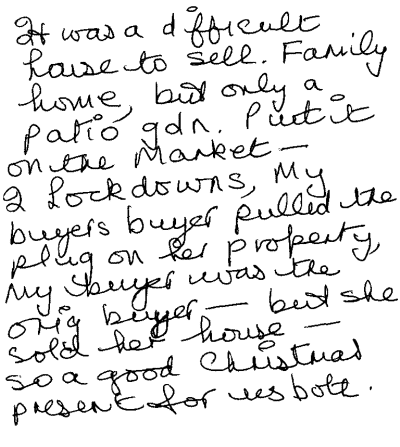 It was a difficult
house to sell. Family
home, but only a
patio gdn. Put it
on the Market -
2 Lockdowns, My
buyers buyer pulled the
plug on her property,
My buyer was the
orig buyer - but she
sold her house -
so a good Christmas
present for us both.